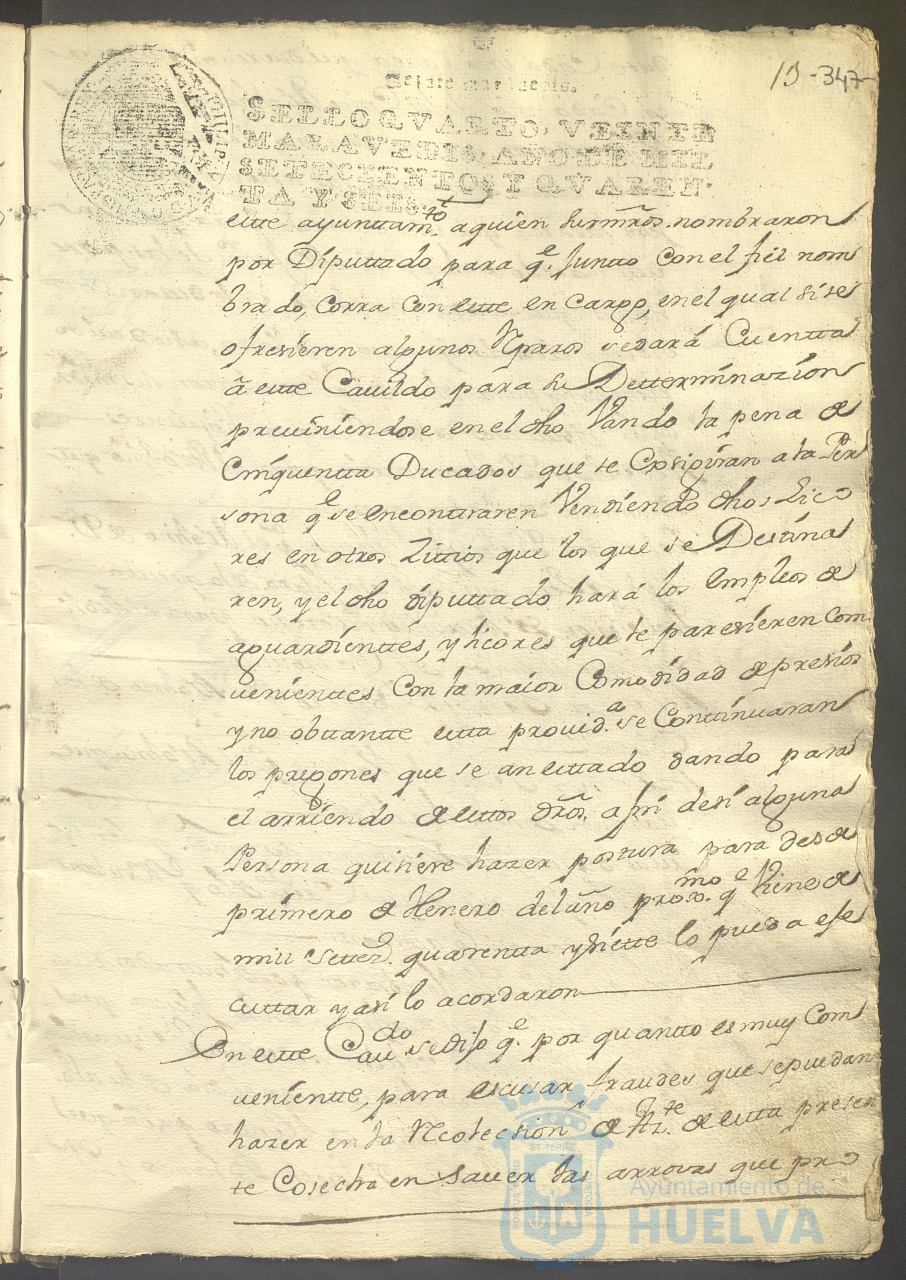 13 - 347
Veinte maravedis.
SELLO QVARTO, VEINTE
MARAVEDIS, AÑO DE MIL
SETECIENTOS Y QVAREN-
TA Y SEIS.
este ayunttamto. a quien sus mrds. nombraron
por Diputtado para qe. Juntto con el fiel nom
brado, corra con este en cargo, en el qual si se
ofresieren algunos Rparos se dará Cuentta
â este Cauildo para su Detterminazion
preuiniendose en el dho Vando la pena de
Cinquentta Ducados que se Exsigiran a la Per
sona qe se encontraren Vendiendo dhos Lico
res en otros Sittios que los que se Destina
ren, y el dho diputtado hará los Empleos de
aguardienttes, y licores que le paresieren com
venienttes con la maior Comodidad de presios
y no obstantte esta prouida. se Conttinuaran
los pregones que se an esttado dando para
el arriendo de estos dros. a fin de si alguna
Persona quisiere hazer posttura para desde
primero de Henero del año proxmo. qe Viene de
mill settez. quarentta y siette lo pueda efe
cuttar y asi lo acordaron
En este Caudo se dijo qe. por quantto es muy Com
venientte, para escusar fraudes que se puedan
hazer en la Rcolecsion de Azte. de esta presen
te Cosecha en sauer las arrovas que pro
Ayuntamiento de
HUELVA